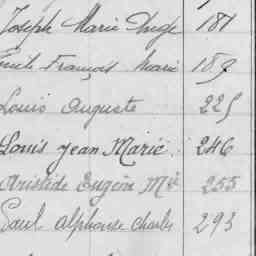 Joseph Marie Ange 181
Emile François Marie 189
Louis Auguste 225
Louis Jean Marie 246
Aristide Eugène Mie 255
Paul Alphonse Charles 293